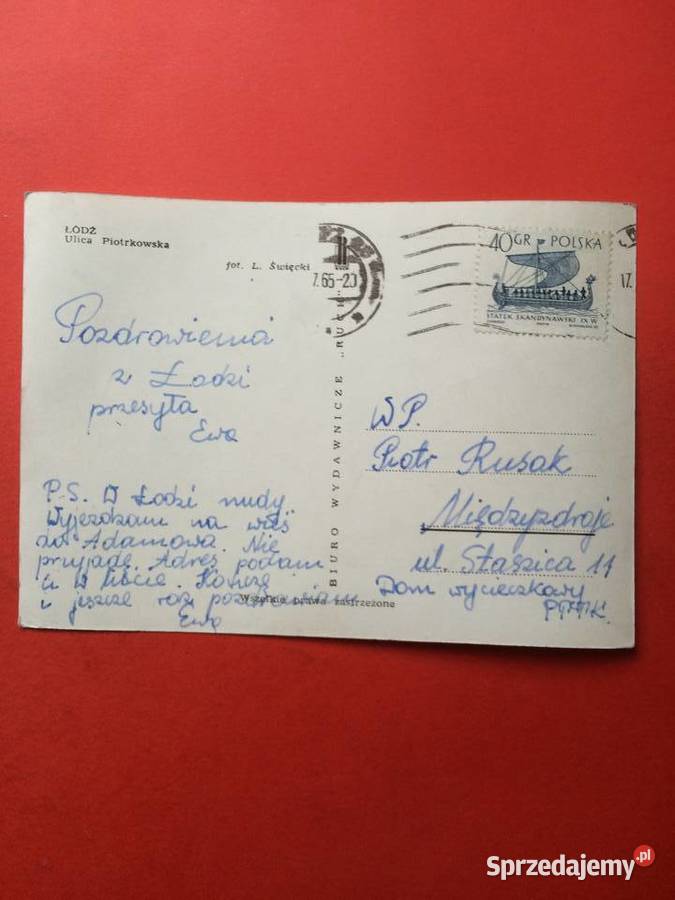 ŁÓDŹ
Ulica Piotrkowska
fot. L. Święcki
Pozdrowienia
z Łodzi
przesyła
Ewa
P.S. W Łodzi nudy.
Wyjeżdżam na wieś
do Adamowa. Nie
przyjadę. Adres podam
Ci w liście. Kończę
i jeszcze raz pozdrawiam
Ewa
Wszelkie prawa zastrzeżone
BIURO WYDAWNICZE „RUCH"
7.65-20
17.
40GR POLSKA
STATEK SKANDYNAWSKI IX W
WP.
Piotr Rusak
Międzyzdroje
ul. Staszica 11
Dom wycieczkowy
PTTK.
Sprzedajemy.pl